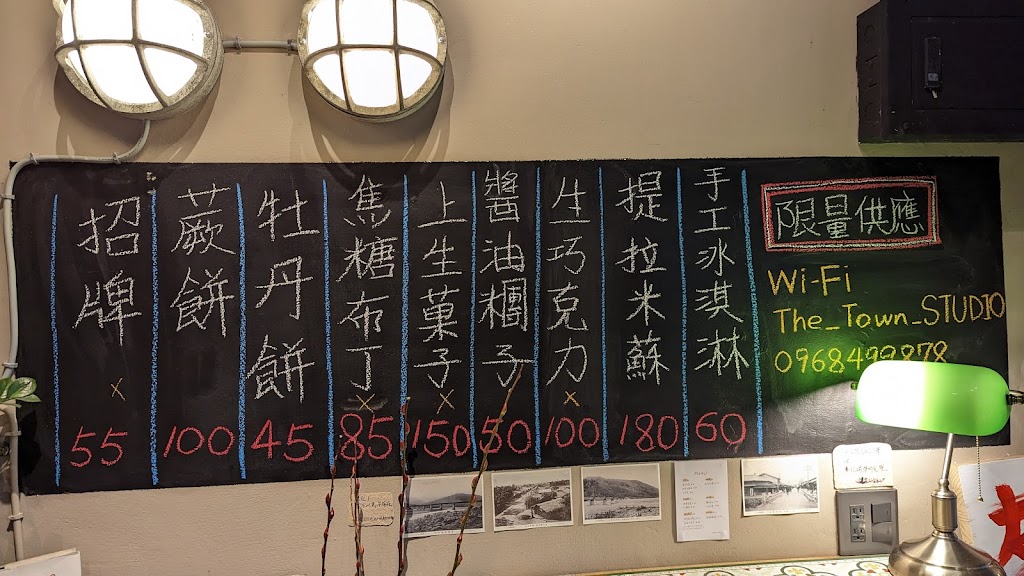 限量供應
Wi-Fi
The_Town_STUDIO
0968499878
手工冰淇淋
60
提拉米蘇
180
生巧克力
x
100
醬油糰子
50
上生菓子
x
150
焦糖布丁
x
85
牡丹餅
45
蕨餅
100
招牌
x
55